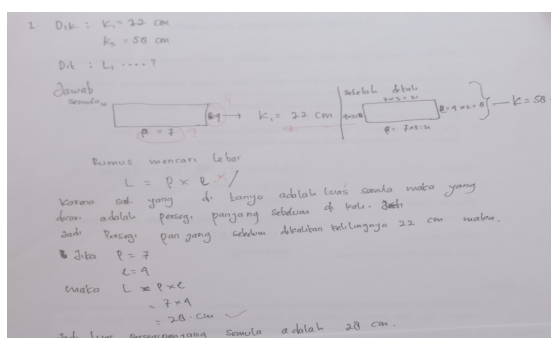 1 Dik : K₁ = 22 cm
K₂ = 58 cm
Dit : L₁ .... ?
Jawab
semula
l = 4 → K₁ = 22 cm
p = 7
setelah dikali
7 x 3 = 21
4x2=8
l = 4 x 2 = 8
— K = 58
p = 7x3=21
Rumus mencari lebar
L = p x l
Karena soal yang di tanyo adalah luas semula maka yang
dicari adalah persegi panjang sebelum di kali.
Jadi Persegi panjang sebelum dikalikan kelilingnya 22 cm maka,
Jika p = 7
l = 4
maka L = p x l
= 7 x 4
= 28 cm
Jadi luas persegi panjang semula adalah 28 cm.